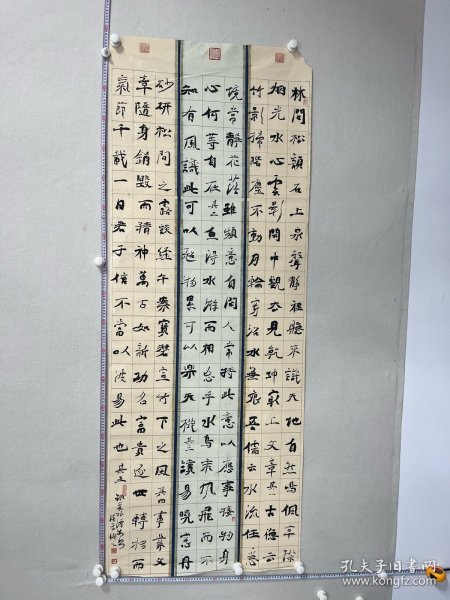 林間松韻石上泉聲靜裡聽來識天地自然鳴佩草際
烟光水心雲影閑中觀去見乾坤最上文章其一古德云
竹影掃階塵不動月輪穿沼水無痕吾儒云水流任急
境常靜花落雖頻意自閑人常持此意以應事接物身
心何等自在其二魚得水游而相忘乎水鳥乘風飛而不
知有風識此可以超物累可以樂天機其三讀易曉窗丹
砂研松間之露談經午案寶磬宣竹下之風其四事業文
章隨身銷毀而精神萬古如新功名富貴逐世轉移而
氣節千載一日君子信不當以彼易此也其五
孔夫子旧书网
www.kongfz.com